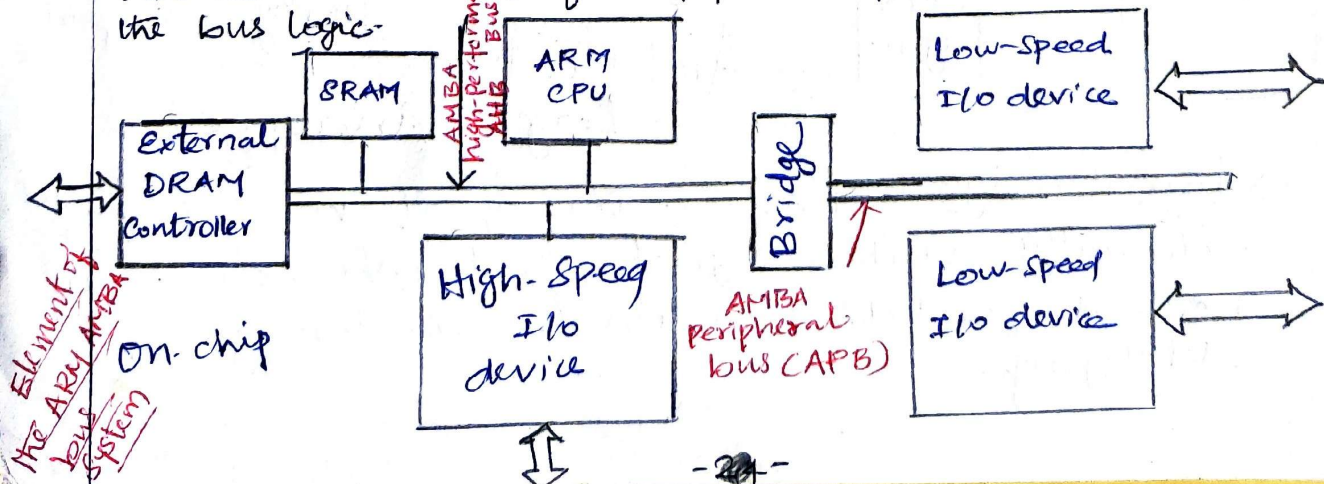 the bus logic.
SRAM
AMBA
high-perform
Bus
AHB
ARM
CPU
Low-Speed
I/o device
External
DRAM
Controller
Bridge
High-Speed
I/o
device
AMBA
peripheral
bus (APB)
Low-Speed
I/o device
Element of
the ARM AMBA
bus
System
On-chip